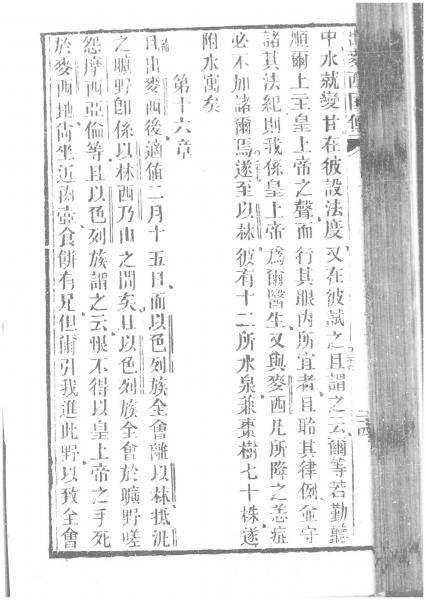 出麥西國傳
二十四
中水就變甘在彼設法度又在彼試之且謂之云爾等若勤聽
順爾上主皇上帝之聲而行其眼內所宜者且聆其律例並守
諸其法紀則我係皇上帝爲爾醫生又與麥西凡所降之恙症
必不加諸爾焉遂至以林彼有十二所水泉兼棗樹七十株遂
附水寓矣
第十六章
且出麥西後適値二月十五日而以色列族全會離以林抵汎
之曠野卽係以林西乃山之間矣且以色列族全會於曠野嗟
怨摩西亞倫等且以色列族謂之云恨不得以皇上帝之手死
於麥西地尙坐近肉壺食餅有足但爾引我進此野以致全會